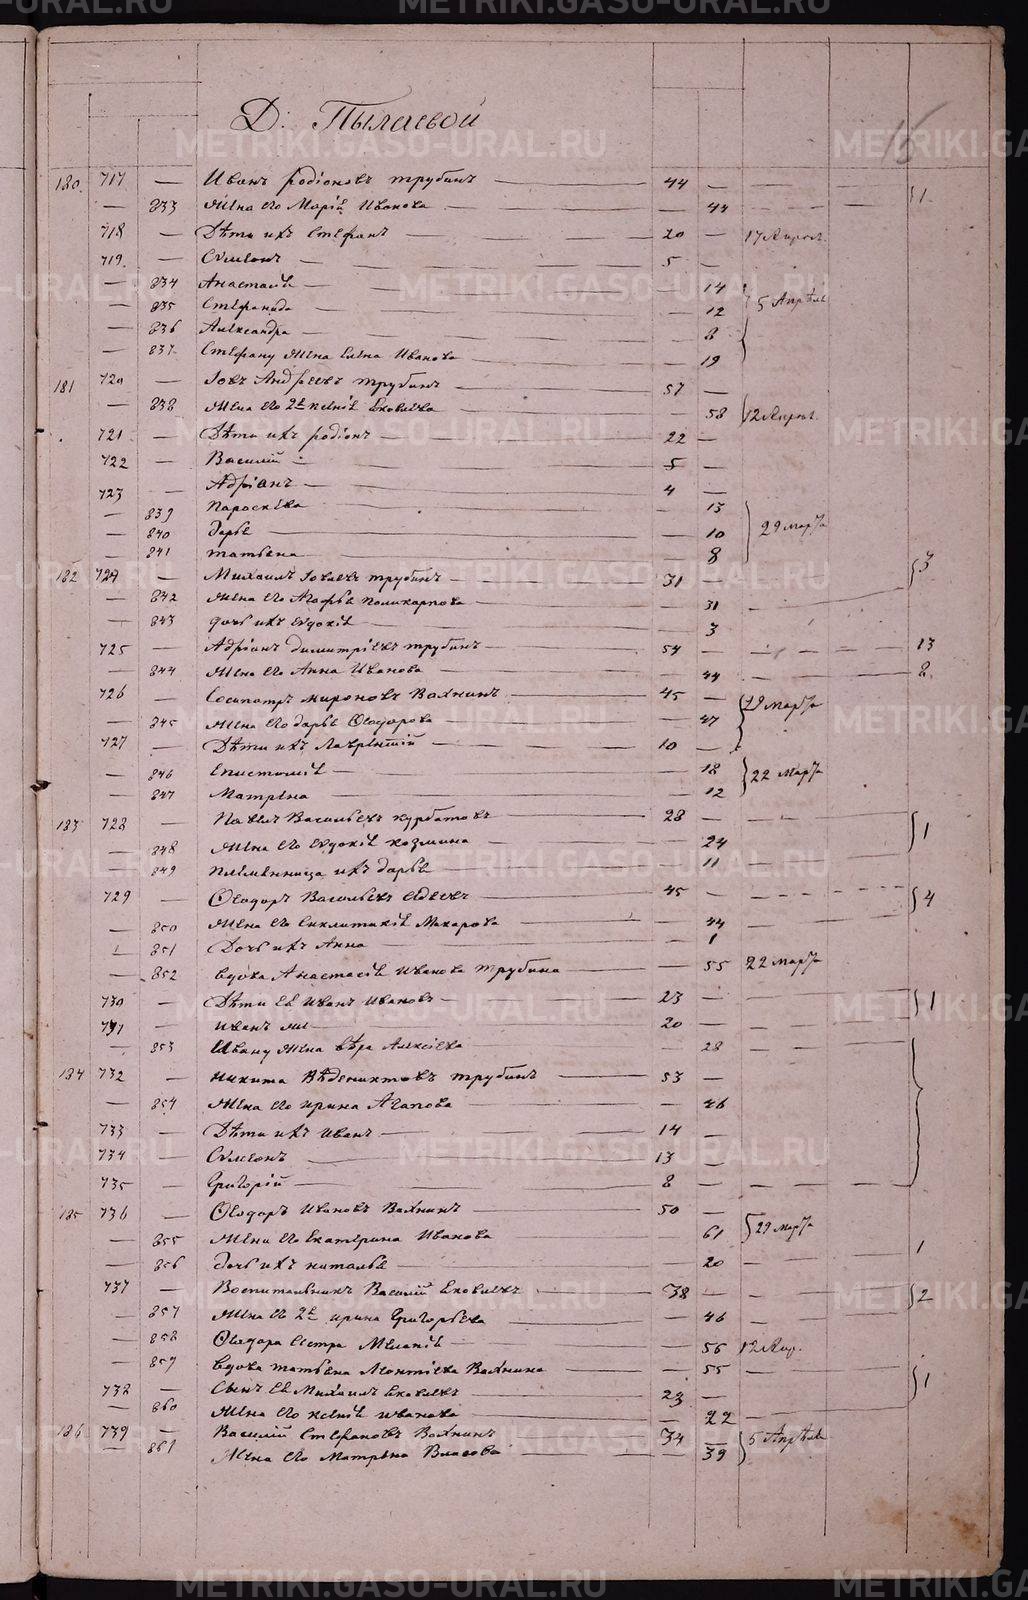 16
Д: Пылаевой
180. 717 — Иванъ Родіоновъ Трубинъ 44 — 1
— 833 Жена его Марія Иванова — 44
718 — Дѣти ихъ Стефанъ 20 — 17 Апрѣл.
719. — Сѵмеонъ 5 —
— 834 Анастасія — 14
— 835 Стефанида — 12 5 Апрѣля
— 836 Александра — 8
— 837 Стефану жена Елена Иванова — 19
181 720 — Іовъ Андреевъ Трубинъ 57 —
— 838 Жена его 2я Ксенія Яковлева — 58 12 Апрѣл.
721 — Дѣти ихъ Родіонъ 22 —
722 — Василій 5 —
723 — Адріанъ 4 —
— 839 Параскева — 13
— 840 Дарья — 10 29 Марта
— 841 Татьяна — 8
182 724 — Михаилъ Іовлевъ Трубинъ 31 — 3
— 842 Жена его Агафья Поликарпова — 31
— 843 Дочь ихъ Евдокія — 3
725 — Адріанъ Димитріевъ Трубинъ 54 — 13
— 844 Жена его Анна Иванова — 44 8.
726 — Сосипатръ Мироновъ Вахнинъ 45 — 29 Марта
— 845 Жена его Дарья Ѳеодорова — 47
727 — Дѣти ихъ Лаврентій 10 —
— 846 Епистимія — 18 22 Марта
— 847 Матрена — 12
183 728 — Павелъ Васильевъ Курбатовъ 28 — 1
— 848 Жена его Евдокія Козмина — 24
— 849 Племянница ихъ Дарья — 11
729 — Ѳеодоръ Васильевъ 45 — 4
— 850 Жена его Синклитикія Макарова — 44
— 851 Дочь ихъ Анна — 1
— 852 Вдова Анастасія Иванова Трубина — 55 22 Марта
730 — Дѣти ея Иванъ Ивановъ 23 — 1
731 — Иванъ мл 20 —
— 853 Ивану жена Вѣра Алексѣева — 28
184 732 — Никита Веденихтовъ Трубинъ 53 —
— 854 Жена его Ирина Агапова — 46
733 — Дѣти ихъ Иванъ 14 —
734 — Сѵмеонъ 13 —
735 — Григорій 8 —
185 736 — Ѳеодоръ Ивановъ Вахнинъ 50 —
— 855 Жена его Екатерина Иванова 61 29 Марта
— 856 Дочь ихъ Наталья — 20 1
737 — Воспитанникъ Василій Яковлевъ 38 — 2
— 857 Жена его 2я Ирина Григорьева — 46
— 858 Ѳеодора сестра Меланія — 56 12 Апр.
— 859 Вдова Татьяна Леонтіева Вахнина — 55 1
738 — Сынъ ея Михаилъ Яковлевъ 23 —
— 860 Жена его Ксенія Иванова — 22
186 739 — Василій Стефановъ Вахнинъ 34 — 5 Апрѣля
— 861 Жена его Матрена Власова — 39
METRIKI.GASO-URAL.RU